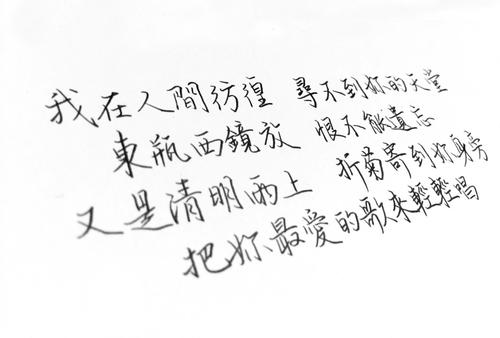 我在人間彷徨 尋不到妳的天堂
東瓶西鏡放 恨不能遺忘
又是清明雨上 折菊寄到妳身旁
把妳最愛的歌來輕輕唱